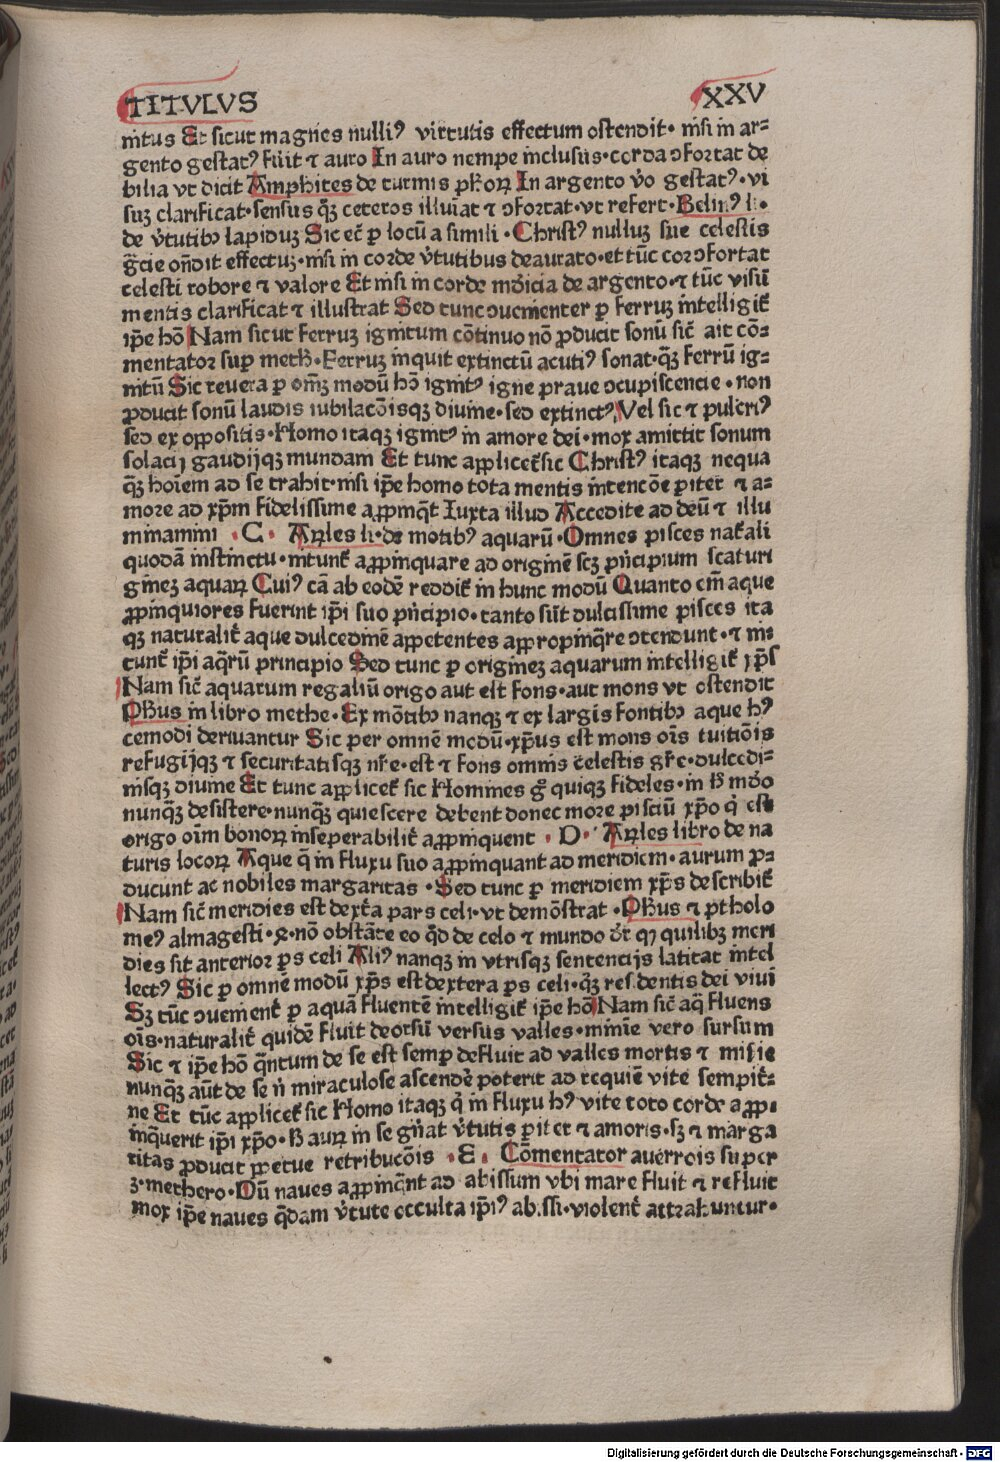 TITVLVS XXV
nitus Et sicut magnes nulliꝰ virtutis effectum ostendit· nisi in ar⸗
gento gestatꝰ fuit ⁊ auro In auro nempe inclusus·corda ɔfortat de
bilia vt dicit Amphites de turmis pħorꝝ In argento v̄o gestatꝰ·vi
suꝫ clarificat·sensus qꝫ ceteros illuīat ⁊ ɔfortat·vt refert·Belinꝰ li·
de v̄tutibꝫ lapiduꝫ Sic ec̄ ꝑ locū a simili·Christꝰ nulluꝫ sue celestis
gr̄cie on̄dit effectuꝫ·nisi in corde v̄tutibus deaurato·et tūc cor ɔfortat
celesti robore ⁊ valore Et nisi in corde mūdicia de argento·⁊ tūc visū
mentis clarificat ⁊ illustrat Sed tunc ɔuenienter ꝑ ferruꝫ intelligit̄
ip̄e hō Nam sicut ferruꝫ ignitum cōtinuo nō ꝓducit sonū sic̄ ait cō⸗
mentator suꝑ meth̄·Ferruꝫ inquit extinctū acutiꝰ sonat·qꝫ ferrū ig⸗
nitū Sic revera ꝑ om̄ꝫ modū hō ignitꝰ igne praue ɔcupiscencie·non
ꝓducit sonū laudis iubilacōisqꝫ diuine·sed extinctꝰ Vel sic ⁊ pulcriꝰ
sed ex oppositis·Homo itaqꝫ ignitꝰ in amore dei·mox amittit sonum
solacij gaudijqꝫ mundani Et tunc applicet̄ sic Christꝰ itaqꝫ nequa
qꝫ hoīem ad se trahit·nisi ip̄e homo tota mentis intencōe ꝑiter ⁊ a⸗
more ad xp̄m fidelissime aꝓpinq̄t Iuxta illud Accedite ad deū ⁊ illu
minamini ·C· Aꝛ̄les li·de motibꝰ aquarū·Omnes pisces nat̄ali
quodā instinctu·nitunt̄ aꝓpinquare ad originē scꝫ pn̄cipium scaturi
gineꝫ aquaꝝ Cuiꝰ cā ab eodē reddit̄ in hunc modū Quanto em̄ aque
ꝓpinquiores fuerint ip̄i suo pn̄cipio·tanto sūt dulcissime pisces ita
qꝫ naturalit̄ aque dulcedinē appetentes appropinq̄re ɔtendunt·⁊ ni
tunt̄ ip̄i aq̄rū principio Sed tunc ꝑ origineꝫ aquarum intelligit̄ xp̄s
Nam sic̄ aquarum regaliū origo aut est fons·aut mons vt ostendit
Pħus in libro methe·Ex mōtibꝫ nanqꝫ ⁊ ex largis fontibꝫ aque hꝰ
cemodi deriuantur Sic per omnē modū·xp̄us est mons oīs tuitiōis
refugijqꝫ ⁊ securitatisqꝫ nr̄e·est ⁊ fons omnis celestis gr̄e·dulcedi⸗
nisqꝫ diuine Et tunc applicet̄ sic Homines gͦ quiqꝫ fideles·in ħ mūdo
nunqꝫ desistere·nunqꝫ quiescere debent donec more pisciū xp̄o qͥ est
origo oīm bonorꝝ inseperabilit̄ aꝓpinquent ·D· Aꝛ̄les libro de na
turis locorꝝ Aque q̄ in fluxu suo aꝓpinquant ad meridiem·aurum ꝓ⸗
ducunt ac nobiles margaritas·Sed tunc ꝑ meridiem xp̄s describit̄
Nam sic̄ meridies est dext̄a pars celi·vt demōstrat·Pħus ⁊ ptholo
meꝰ almagesti·x·nō obstāte eo qd̄ de celo ⁊ mundo dr̄ qꝫ quilibꝫ meri
dies sit anterior ꝑs celi Aliꝰ nanqꝫ in vtrisqꝫ sentencijs latitat intel
lectꝰ Sic ꝑ omnē modū xp̄s est dextera ꝑs celi·qꝫ residentis dei viui
Sꝫ tūc ɔuenient̄ ꝑ aquā fluentē intelligit̄ ip̄e hō Nam sic̄ aq̄ fluens
oīs·naturalit̄ quidē fluit deorsū versus valles·minīe vero sursum
Sic ⁊ ip̄e hō q̄ntum de se est semꝑ defluit ad valles mortis ⁊ miſie
nunqꝫ aūt de se n̄ miraculose ascendē poterit ad requiē vite sempit̄⸗
ne Et tūc applicet̄ sic Homo itaqꝫ qͥ in fluxu hꝰ vite toto corde aꝓpi
inq̄uerit ip̄i xp̄o·ħ auꝝ in se gn̄at v̄tutis ꝑiter ⁊ amoris·sꝫ ⁊ marga
ritas ꝓducit ꝑpetue retribucōis ·E· Cōmentator averrois super
ꝫ·metħero·Dū naues aꝓpinq̄nt ad abissum vbi mare fluit ⁊ refluit
mox ip̄e naues q̄dam v̄tute occulta ip̄iꝰ abissi·violent̄ attrahuntur·
Digitalisierung gefördert durch die Deutsche Forschungsgemeinschaft - DFG